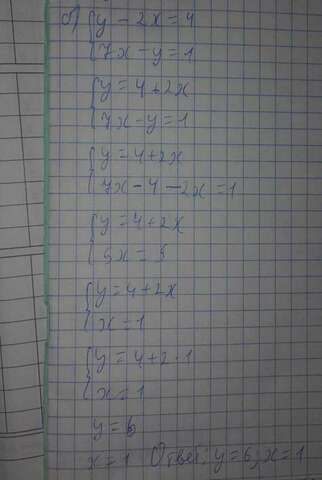 б) { y - 2x = 4
{ 7x - y = 1
{ y = 4 + 2x
{ 7x - y = 1
{ y = 4 + 2x
{ 7x - 4 - 2x = 1
{ y = 4 + 2x
{ 5x = 5
{ y = 4 + 2x
{ x = 1
{ y = 4 + 2 · 1
{ x = 1
y = 6
x = 1 Ответ: y = 6; x = 1